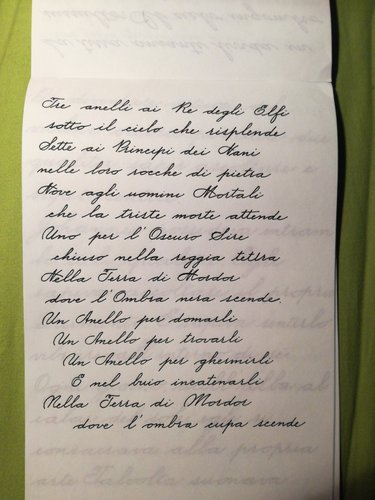 Tre anelli ai Re degli Elfi
sotto il cielo che risplende
Sette ai Principi dei Nani
nelle loro rocche di pietra
Nove agli uomini Mortali
che la triste morte attende
Uno per l'Oscuro Sire
chiuso nella reggia tetra
Nella Terra di Mordor
dove l'Ombra nera scende.
Un Anello per domarli
Un Anello per trovarli
Un Anello per ghermirli
E nel buio incatenarli
Nella Terra di Mordor
dove l'ombra cupa scende